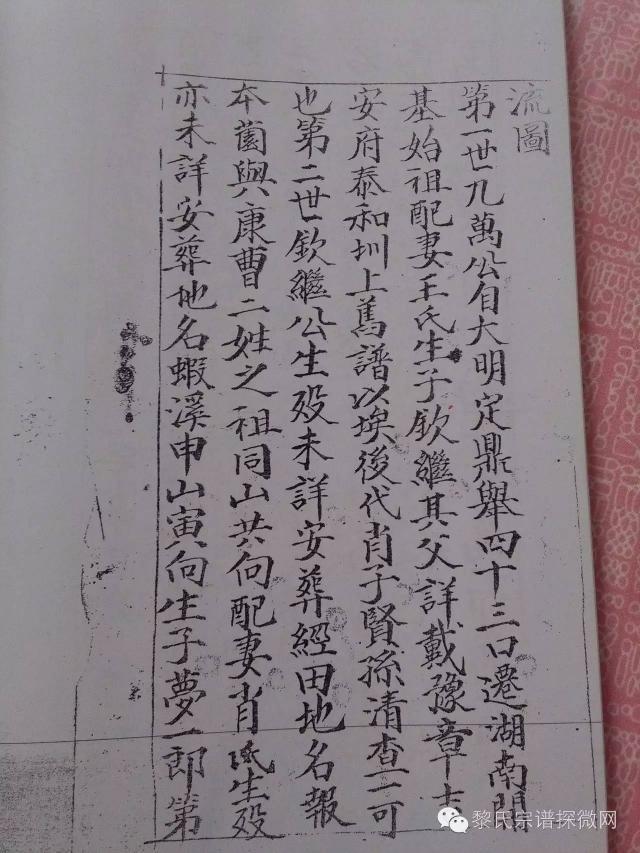 流圖
第一世九萬公自大明定鼎舉四十三口遷湖南開
基始祖配妻王氏生子欽繼其父詳載豫章吉
安府泰和圳上舊譜以埃後代肖子賢孫清查二可
也第二世欽繼公生殁未詳安葬經田地名報
本菌與康曹二姓之祖同山共向配妻肖氏生殁
亦未詳安葬地名蝦溪申山寅向生子夢一郎第
黎氏宗谱探微网